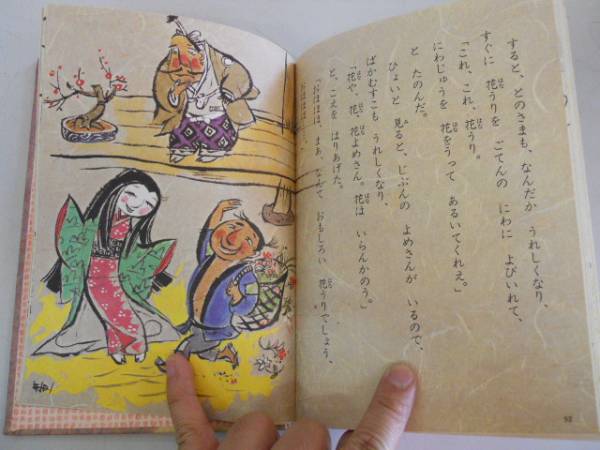 すると、とのさまも、なんだか うれしくなり、
すぐに 花うりを ごてんの にわに よびいれて、
「これ、これ、花うり。
にわじゅうを 花をうって あるいてくれえ。」
と たのんだ。
ひょいと 見ると、じぶんの よめさんが いるので、
ばかむすこも うれしくなり、
「花や、花、花よめさん。花は いらんかのう。」
と、こえを はりあげた。
「おほほほ、まあ、なんて おもしろい 花うりでしょう。
52